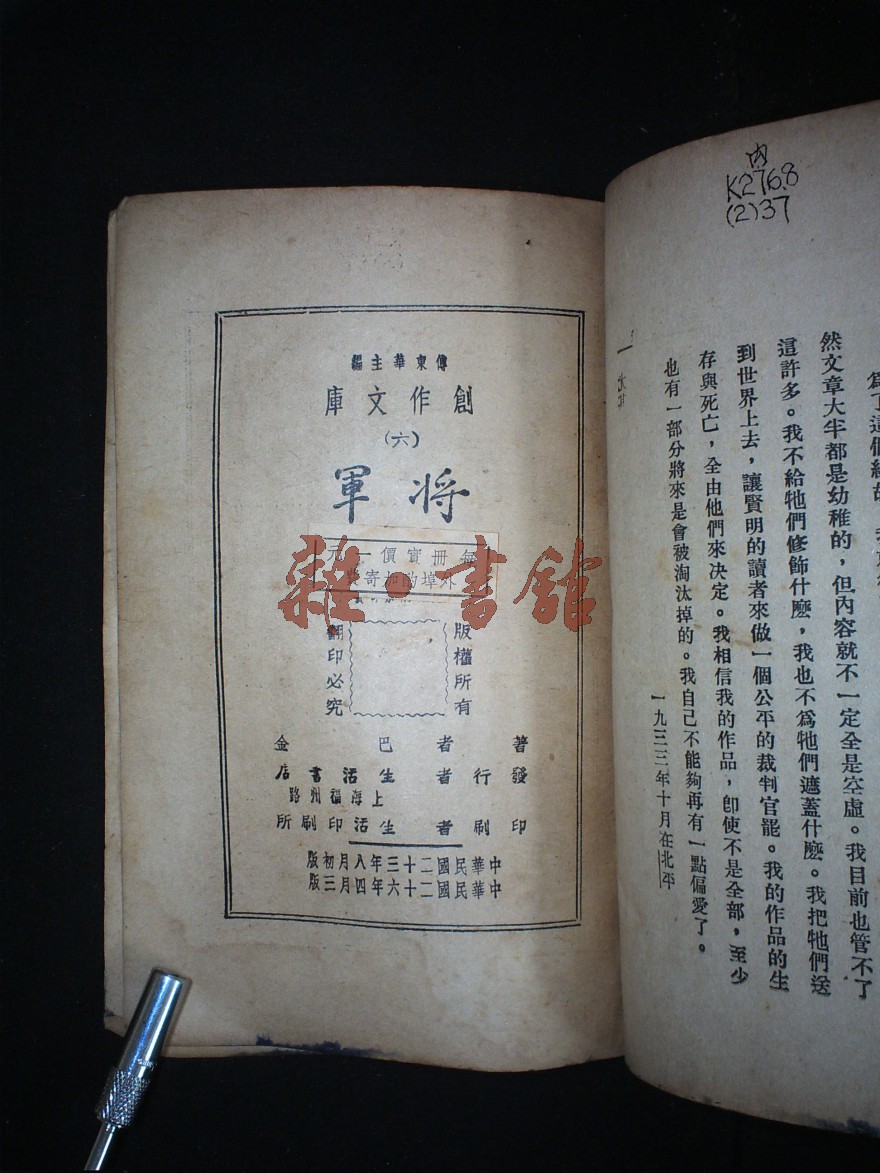 內
K276.8
(2)37
然文章大半都是幼稚的，但內容就不一定全是空虛。我目前也管不了
這許多。我不給牠們修飾什麼，我也不爲牠們遮蓋什麼。我把牠們送
到世界上去，讓賢明的讀者來做一個公平的裁判官罷。我的作品的生
存與死亡，全由他們來決定。我相信我的作品，卽使不是全部，至少
也有一部分將來是會被淘汰掉的。我自己不能夠再有一點偏愛了。
一九三三年十月在北平
傅東華主編
創作文庫
（六）
將軍
每冊實價一元
外埠酌加寄費
雜·書館
版權所有
翻印必究
著者巴金
發行者生活書店
上海福州路
印刷者生活印刷所
中華民國二十三年八月初版
中華民國二十六年四月三版